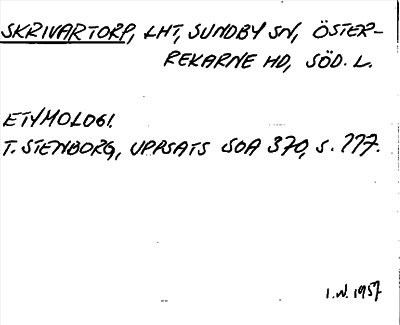 SKRIVARTORP, LHT, SUNDBY SN, ÖSTER-
REKARNE HD, SÖD. L.
ETYMOLOGI.
T. STENBORG, UPPSATS SOA 370, S. 777.
I.W. 1957